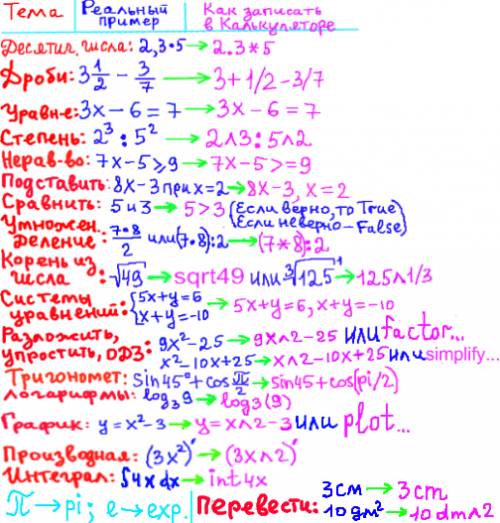 Тема Реальный пример Как записать в Калькуляторе
Десятич. числа: 2,3·5 → 2.3*5
Дроби: 3 1/2 − 3/7 → 3+1/2−3/7
Уравн-е: 3x−6=7 → 3x−6=7
Степень: 2³:5² → 2∧3:5∧2
Нерав-во: 7x−5⩾9 → 7x−5>=9
Подставить: 8x−3 при x=2 → 8x−3, x=2
Сравнить: 5 и 3 → 5>3 (Если верно, то True)
(Если неверно – False)
Умножен. Деление: 7·8/2 или (7·8):2 → (7*8):2
Корень из числа: √49 → sqrt49 или ³√125¹ → 125∧1/3
Системы уравнений: {5x+y=6 x+y=−10 → 5x+y=6, x+y=−10
Разложить, упростить, ОДЗ: 9x²−25 → 9x∧2−25 или factor...
x²−10x+25 → x∧2−10x+25 или simplify...
Тригономет: sin45°+cos π/2 → sin45+cos(pi/2)
логарифмы: log₃9 → log3(9)
График: y=x²−3 → y=x∧2−3 или plot...
Производная: (3x²)′ → (3x∧2)′
Интеграл: ∫4x dx → int4x
π → pi; e → exp.
Перевести: 3см → 3cm
10дм² → 10dm∧2